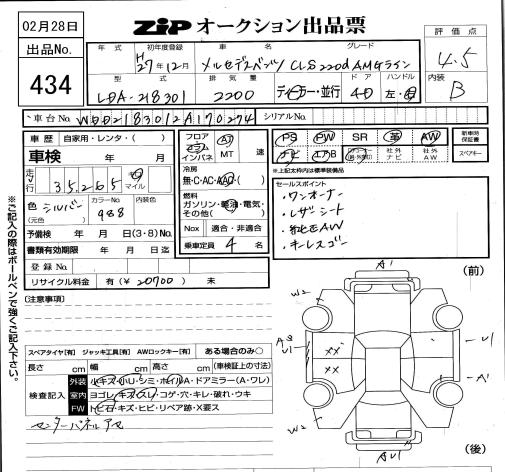 02月28日
ZIP オークション出品票
出品No.
434
年式 初年度登録 車名 グレード
H 27年12月 メルセデスベンツ CLS220d AMGライン
型式 排気量 ドア ハンドル
LDA-218301 2200 ディーラー・並行 4D 左・右
評価点
4.5
内装
B
車台No. WDD2183012A170274 シリアルNo.
車歴 自家用・レンタ・( )
車検 年 月
走行 35,265 km マイル
色 シルバー (元色) カラーNo. 988 内装色
予備検 年 月 日(3・8)No.
書類有効期限 年 月 日迄
登録No.
リサイクル料金 有(¥20700) 未
フロア コラム インパネ AT MT 速
冷房
無・C・AC・AAC・( )
燃料
ガソリン・軽油・電気・その他( )
Nox 適合・非適合
乗車定員 4 名
PS PW SR 革 AW
ナビ エアB 社外ナビ 社外AW
新車時保証書
スペアキー
*上記太枠内は標準装備品
セールスポイント
・ワンオーナー
・レザーシート
・純正AW
・キーレスゴー
※ご記入の際はボールペンで強くご記入下さい。
[注意事項]
スペアタイヤ[有] ジャッキ工具[有] AWロックキー[有] ある場合のみ○
長さ cm 幅 cm 高さ cm (車検証上の寸法)
検査記入
外装 小キズ・小ハ・シミ・ホイルA・ドアミラー(A・ワレ)
室内 ヨゴレ・キズ・スレ・コゲ・穴・キレ・破れ・ウキ
FW トビ石・キズ・ヒビ・リペア跡・X要ス
センターパネルアセ
(前)
A1
W2
A3
U1
XX
XX
U1
W2
AU1
(後)